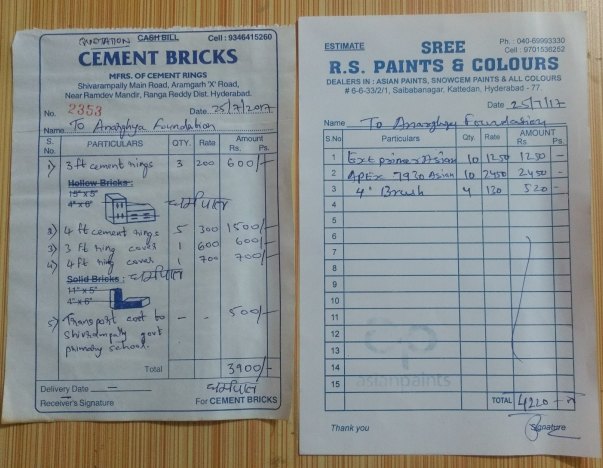 QUOTATION CASH BILL Cell : 9346415260
CEMENT BRICKS
MFRS. OF CEMENT RINGS
Shivarampally Main Road, Aramgarh 'X' Road,
Near Ramdev Mandir, Ranga Reddy Dist. Hyderabad.
No. 2353 Date. 25/7/2017
Name To Anarghya Foundation
S. No. PARTICULARS QTY. Rate Amount Rs. Ps.
1) 3 ft cement rings 3 200 600/-
Hollow Bricks :
15" X 5"
4" X 6"
2) 4 ft cement rings 5 300 1500/-
3) 3 ft ring cover 1 600 600/-
4) 4 ft ring cover 1 700 700/-
Solid Bricks :
11" X 5"
4" X 6"
5) Transport cost to - - 500/-
Shivrampally govt
primary school.
Total 3900/-
Delivery Date -
Receiver's Signature For CEMENT BRICKS
ESTIMATE Ph. : 040-69993330
Cell : 9701536252
SREE
R.S. PAINTS & COLOURS
DEALERS IN : ASIAN PAINTS, SNOWCEM PAINTS & ALL COLOURS
# 6-6-33/2/1, Saibabanagar, Kattedan, Hyderabad - 77.
Date 25/7/17
Name To Anarghya Foundation
S.No Particulars Qty. Rate AMOUNT Rs Ps.
1 Ext primer Asian 10 1250 1250 -
2 APEX 7930 Asian 10 2450 2450 -
3 4" Brush 4 130 520 -
4
5
6
7
8
9
10
11
12
13
14
15
asianpaints
TOTAL 4220 -
Thank you Signature